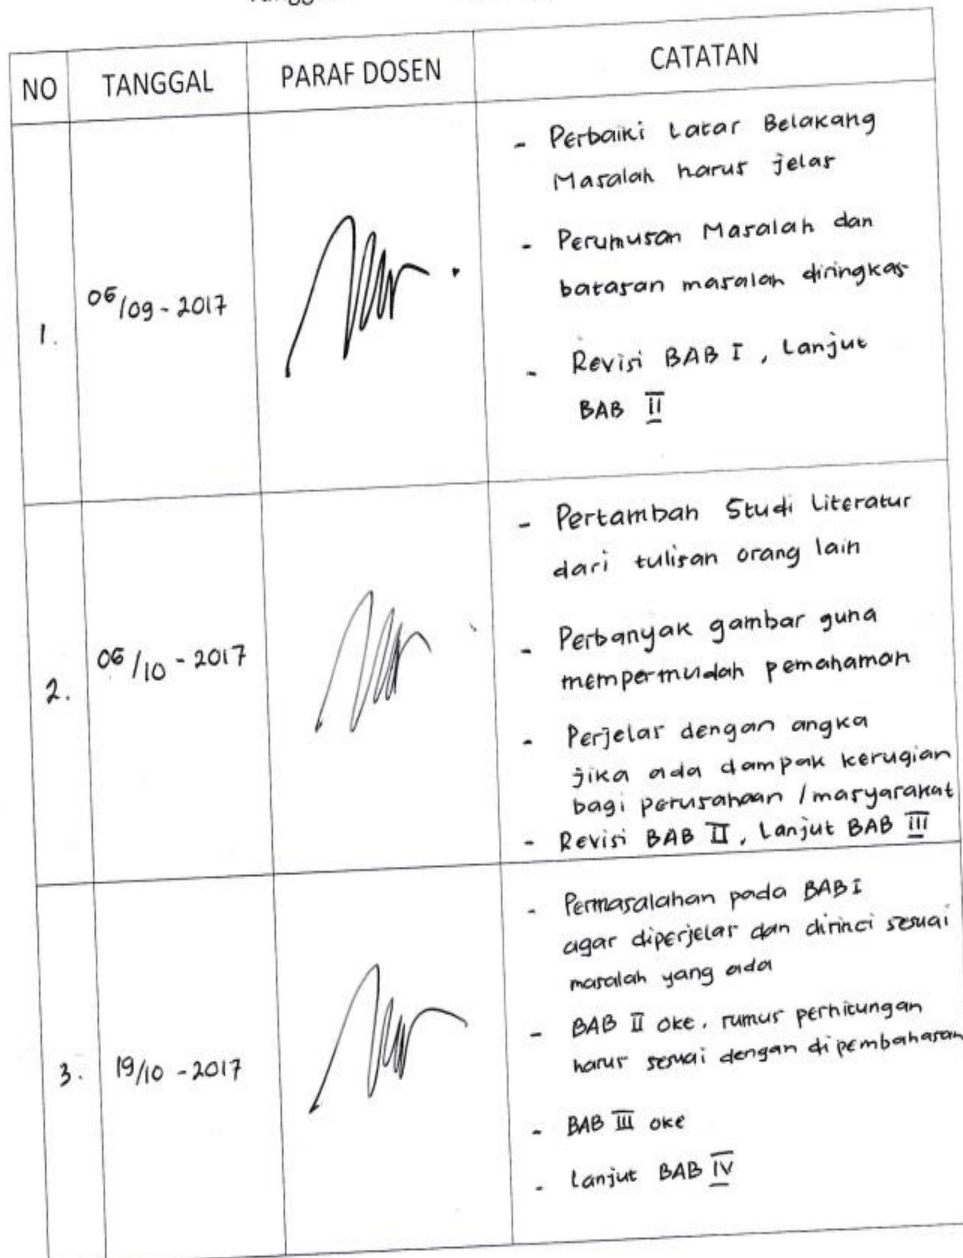 NO TANGGAL PARAF DOSEN CATATAN
1. 06/09 - 2017
- Perbaiki Latar Belakang
Masalah harus jelas
- Perumusan Masalah dan
batasan masalah diringkas
- Revisi BAB I , Lanjut
BAB II
2. 06/10 - 2017
- Pertambah Studi Literatur
dari tulisan orang lain
- Perbanyak gambar guna
mempermudah pemahaman
- Perjelas dengan angka
jika ada dampak kerugian
bagi perusahaan / masyarakat
- Revisi BAB II , Lanjut BAB III
3. 19/10 - 2017
- Permasalahan pada BAB I
agar diperjelas dan dirinci sesuai
masalah yang ada
- BAB II oke, rumus perhitungan
harus sesuai dengan dipembahasan
- BAB III oke
- Lanjut BAB IV